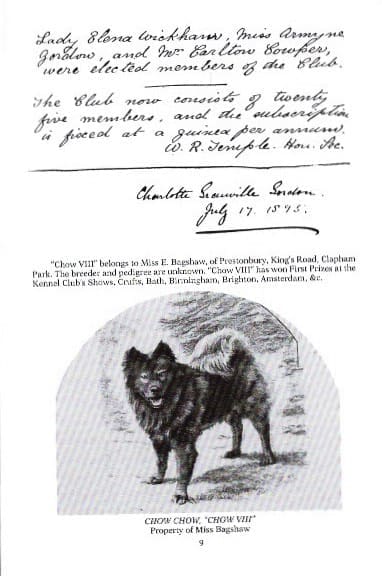 Lady Elena Wickham, Miss Armyne
Gordon, and Mr Carlton Cowper,
were elected members of the Club.
The Club now consists of twenty
five members, and the subscription
is fixed at a guinea per annum.
W. R. Temple. Hon. Sec.
Charlotte Granville Gordon.
July 17. 1895.
"Chow VIII" belongs to Miss E. Bagshaw, of Prestonbury, King's Road, Clapham
Park. The breeder and pedigree are unknown. "Chow VIII" has won First Prizes at the
Kennel Club's Shows, Crufts, Bath, Birmingham, Brighton, Amsterdam, &c.
CHOW CHOW, "CHOW VIII"
Property of Miss Bagshaw
9